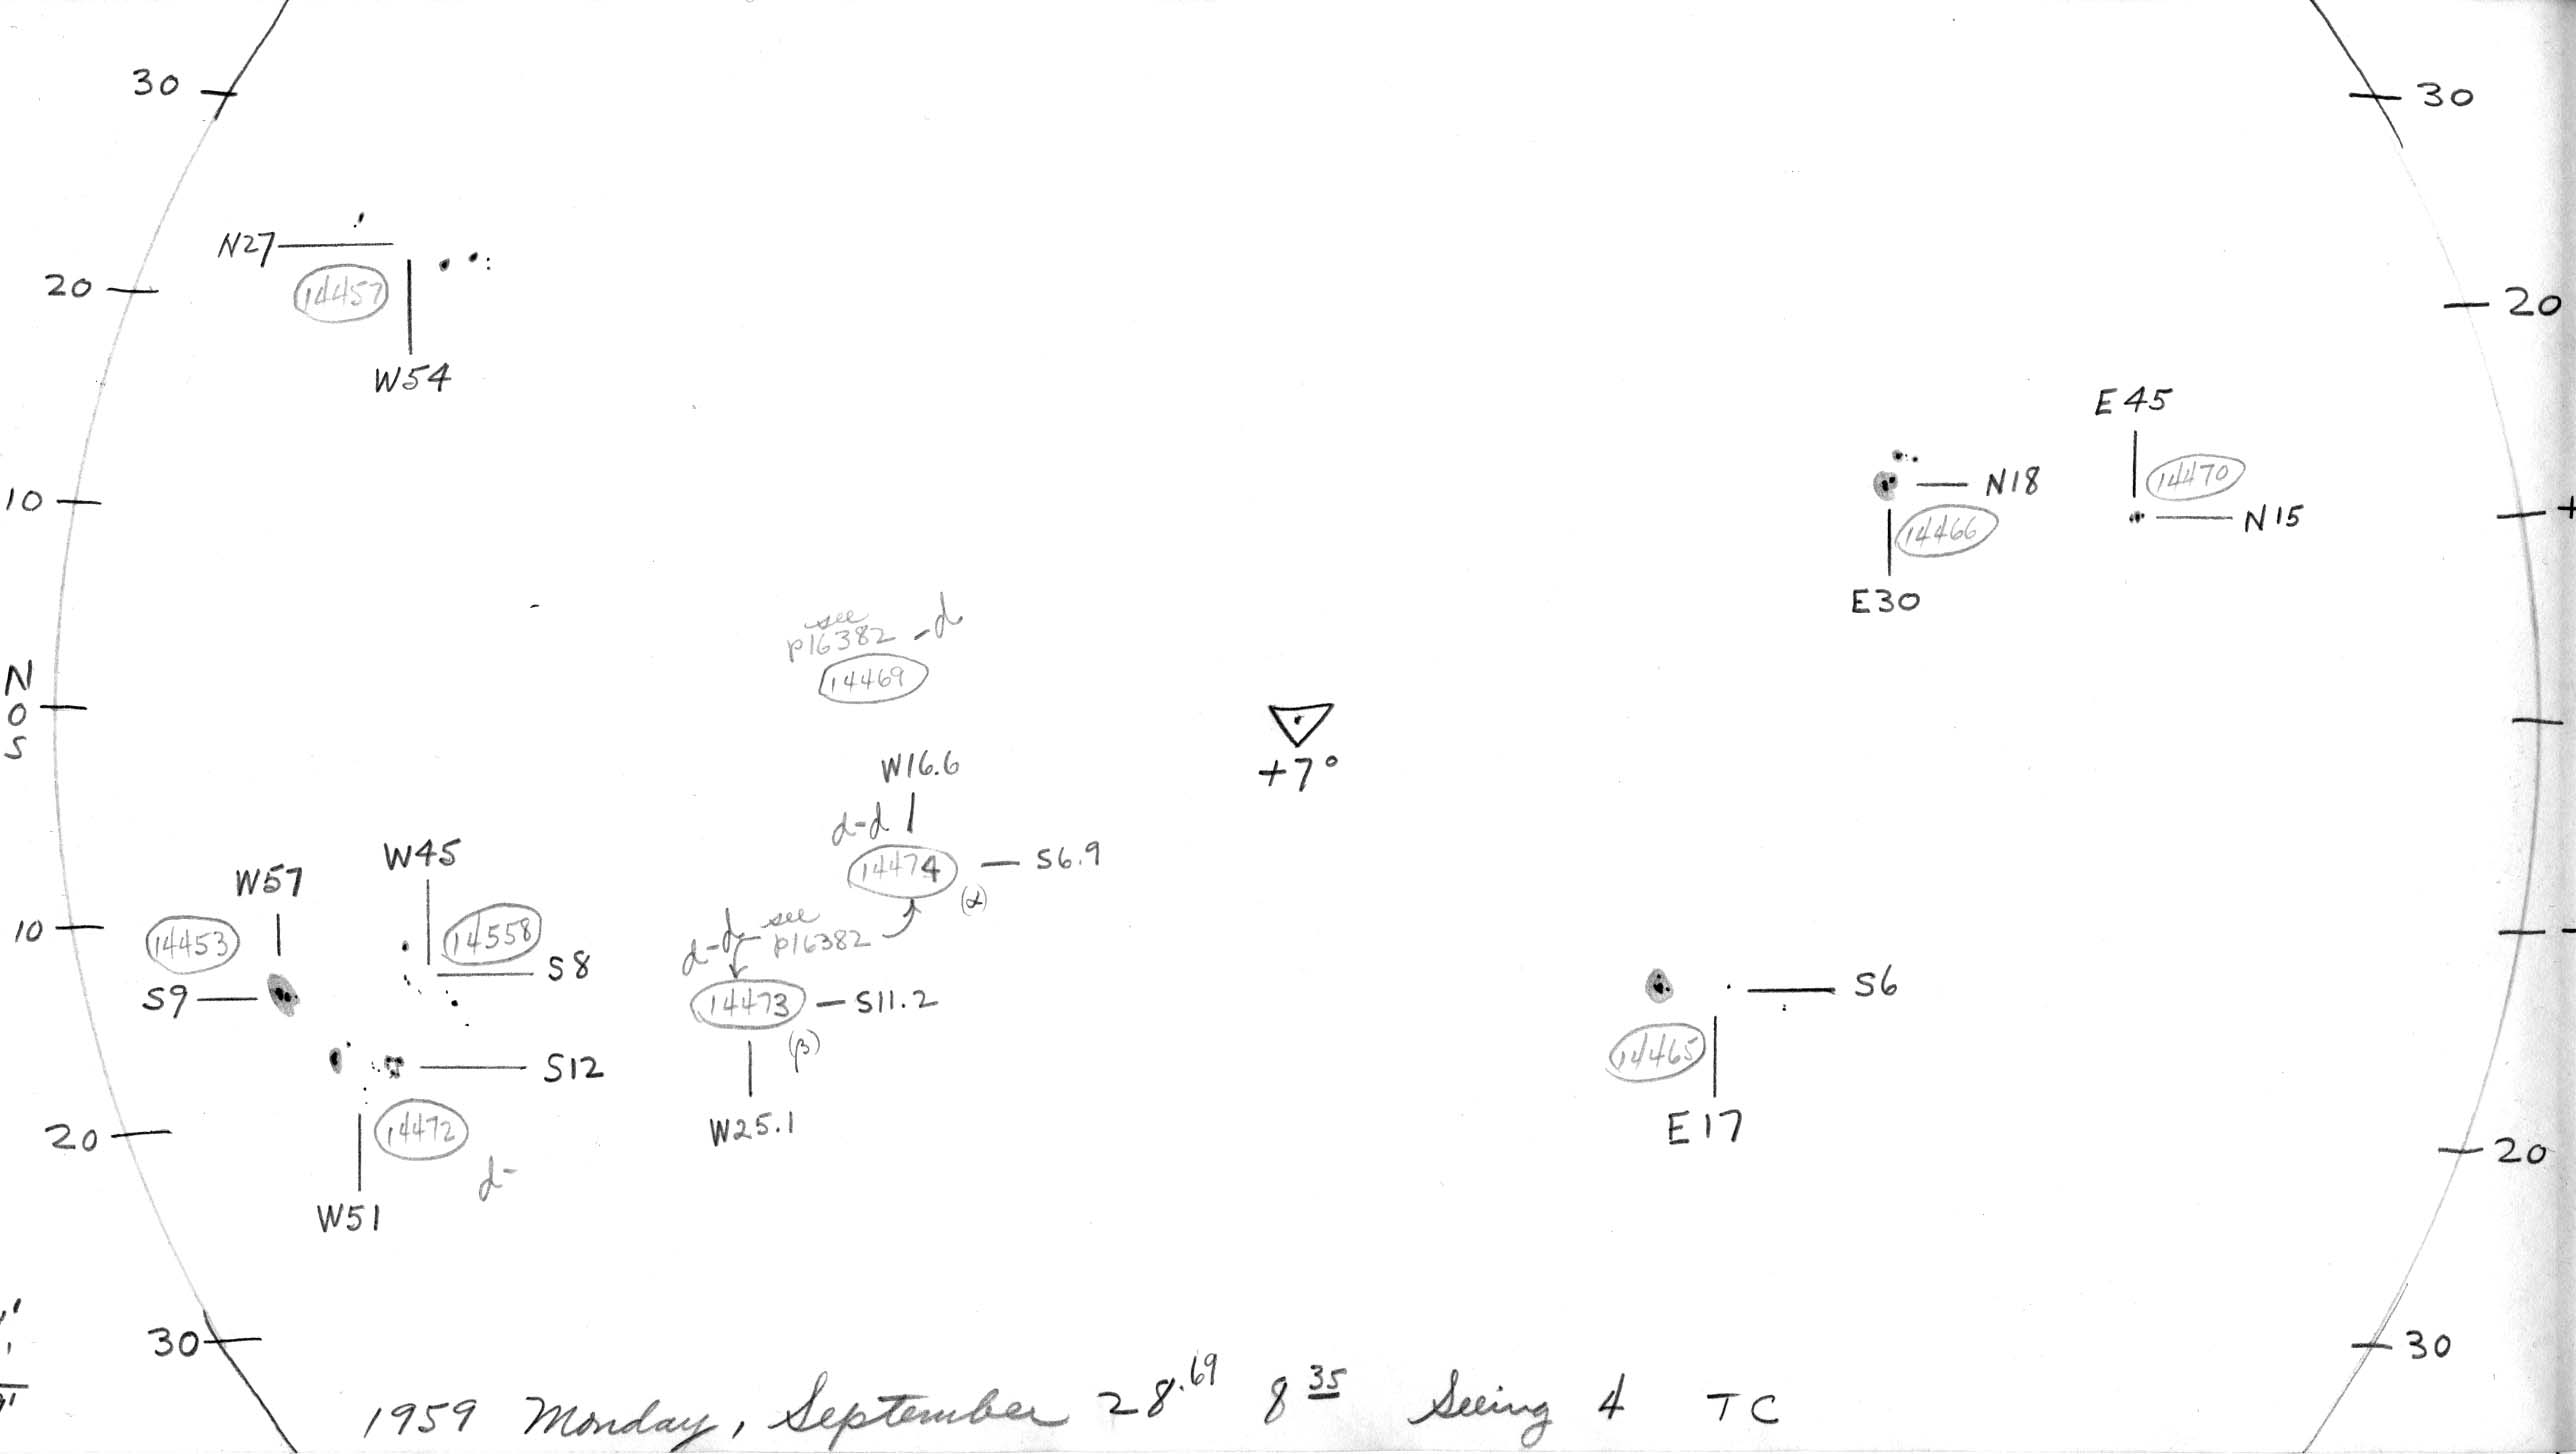 30
30
N27
20
14457
20
W54
E 45
10
N18
14470
14466
N 15
E30
see
p16382 -d
14469
N
0
S
+7°
W16.6
d-d
W45
14474
S6.9
(α)
W57
14453
10
14558
d-d
see
p16382
S8
S9
14473
S11.2
(β)
S6
S12
14465
W25.1
E17
20
14472
d-
20
W51
30
30
1959 Monday, September 28.69 8 35 Seeing 4 TC